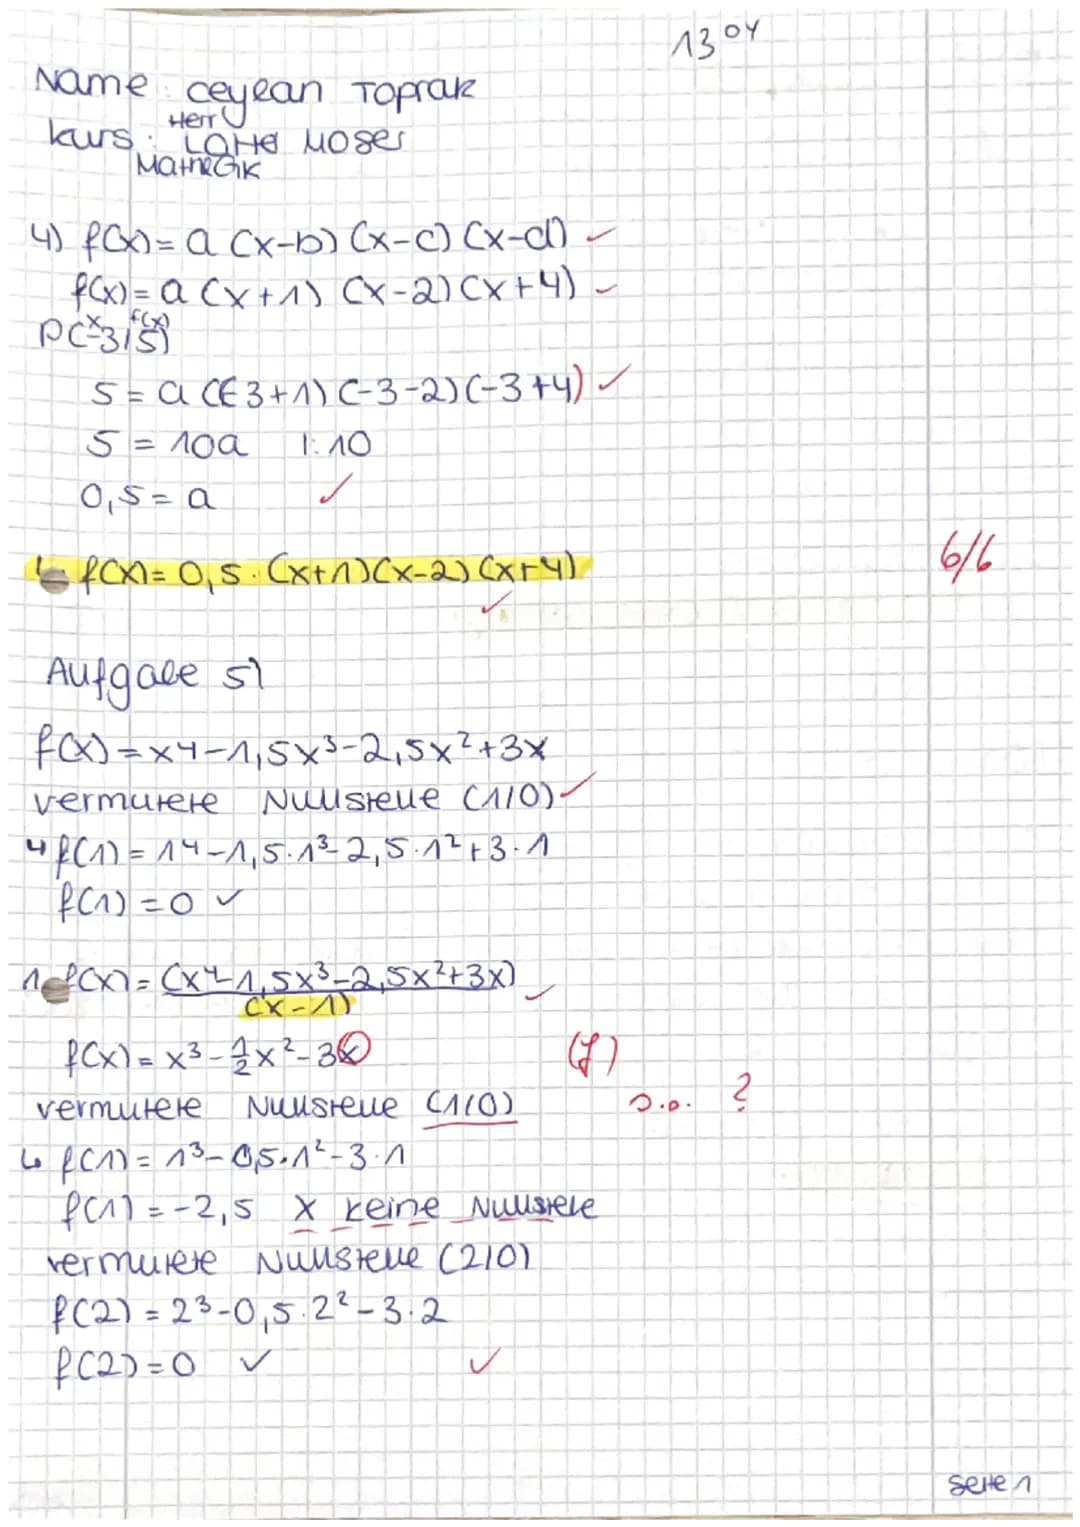 13 04
Name: Ceylan Toprak
Herr
Kurs: Moser
Mathe GK
4) f(x) = a (x-b) (x-c) (x-d) ✓
f(x) = a (x+1) (x-2) (x+4) ✓
x f(x)
P(-3/5)
5 = a (-3+1) (-3-2) (-3+4) ✓
5 = 10a |:10
0,5 = a ✓
f(x) = 0,5 · (x+1) (x-2) (x+4) 6/6
✓
Aufgabe 5)
f(x) = x4 - 1,5x³ - 2,5x² + 3x
vermutete Nullstelle (1/0) ✓
↳ f(1) = 14 - 1,5·1³ - 2,5·1² + 3·1
f(1) = 0 ✓
1. f(x) = (x4 - 1,5x³ - 2,5x² + 3x) ✓
(x-1)
f(x) = x³ - 1/2 x² - 3x (f)
vermutete Nullstelle (1/0) s.o. ?
↳ f(1) = 1³ - 0,5·1² - 3·1
f(1) = -2,5 x keine Nullstelle
vermutete Nullstelle (2/0)
f(2) = 2³ - 0,5·2² - 3·2
f(2) = 0 ✓ ✓
Seite 1